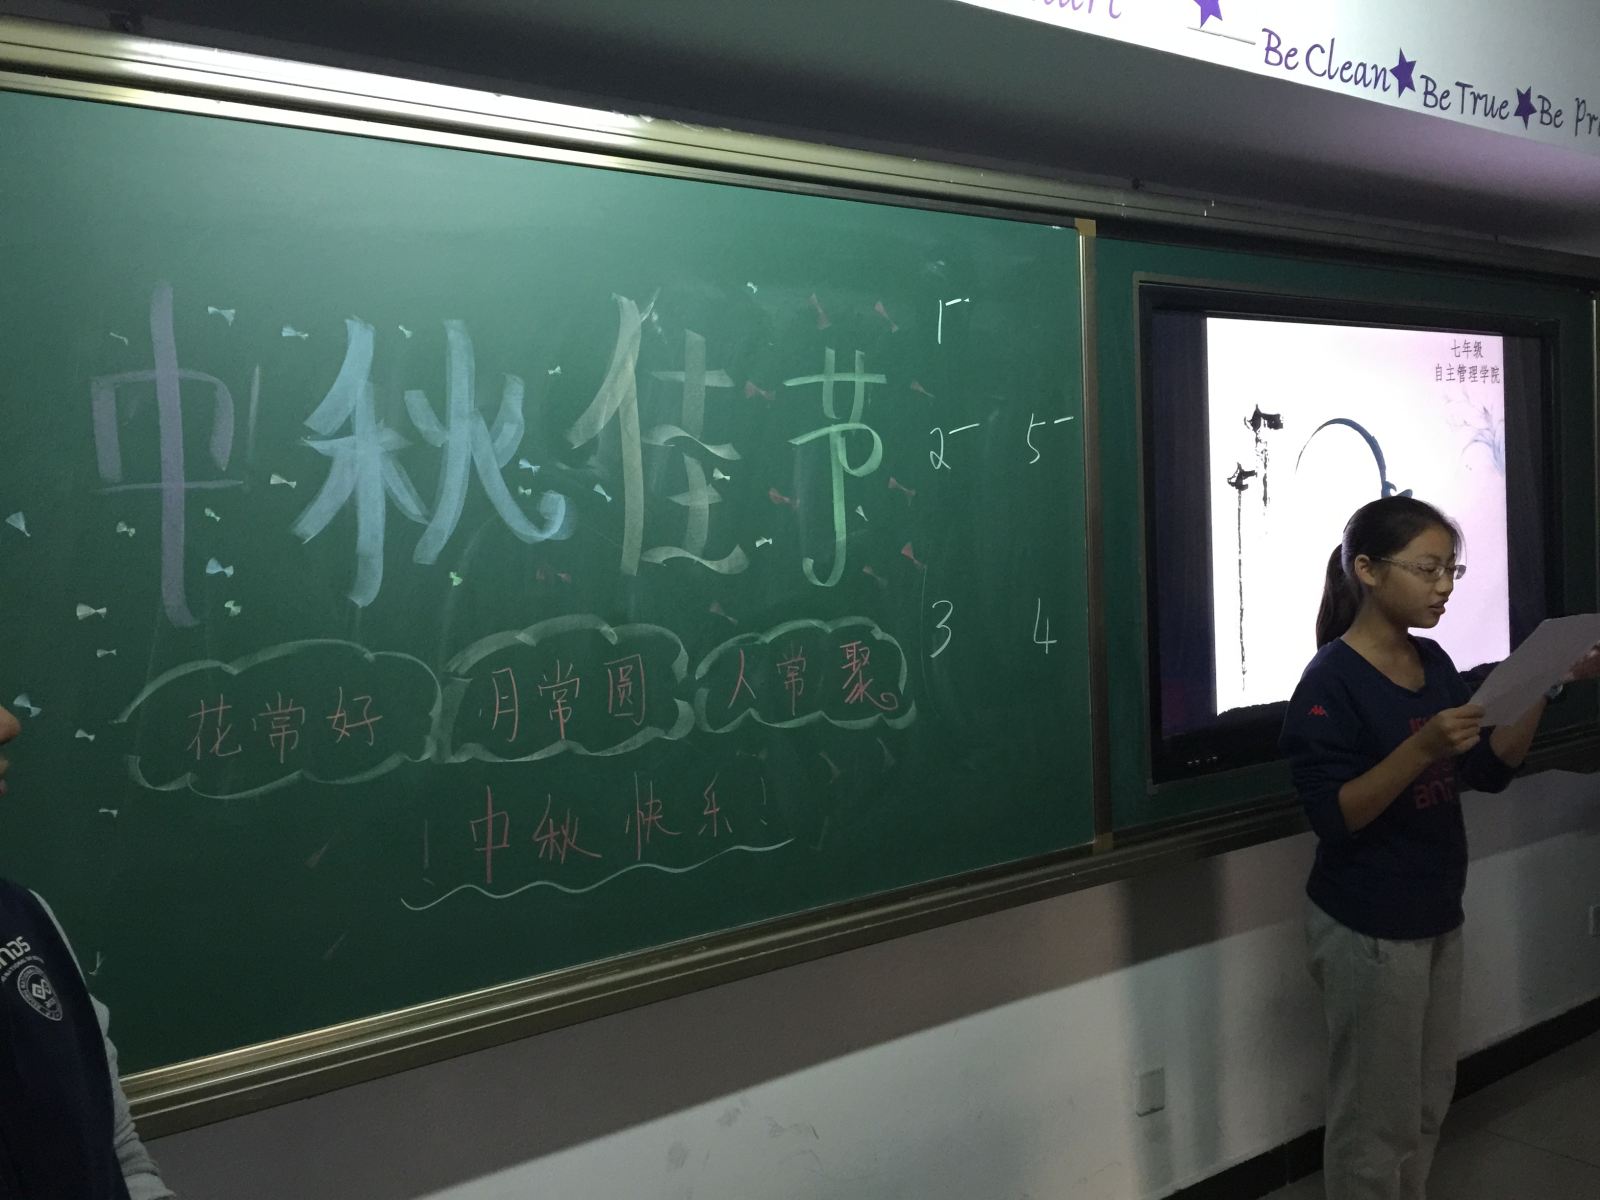 Be Clean★Be True★Be
中秋佳节
花常好 月常圆 人常聚
!中秋快乐!
1
2 5
3 4
七年级
自主管理学院